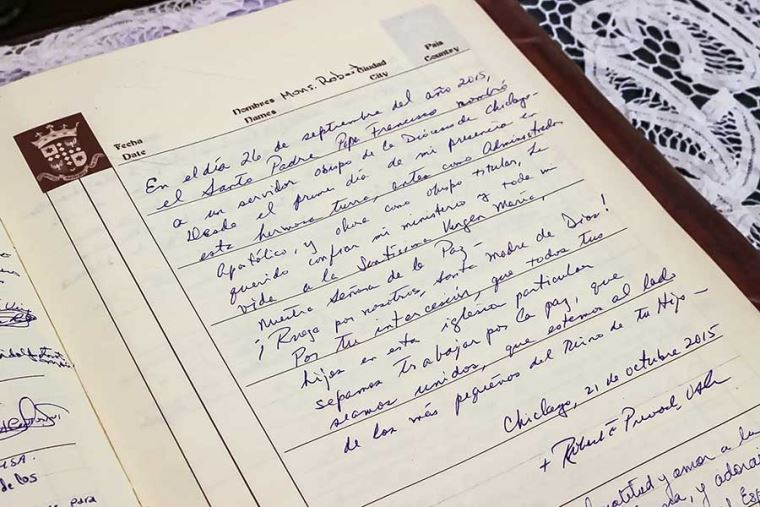 País
Country
Nombres Mons. Robert Ciudad
Names City
Fecha
Date
En el día 26 de septiembre del año 2015,
el Santo Padre Papa Francisco nombró
a un servidor obispo de la Diócesis de Chiclayo.
Desde el primer día de mi presencia en
esta hermosa tierra, antes como Administrador
Apostólico, y ahora como obispo titular, he
querido confiar mi ministerio y toda mi
vida a la Santísima Virgen María,
Nuestra Señora de la Paz -
¡Ruega por nosotros, santa madre de Dios!
Por tu intercesión, que todos tus
hijos en esta iglesia particular
sepamos trabajar por la paz, que
seamos unidos, que estemos al lado
de los más pequeños del Reino de tu Hijo -
Chiclayo, 21 de octubre 2015
+ Robert F. Prevost, OSA
gratitud y amor a la
y adora
el
USA.
de los
para